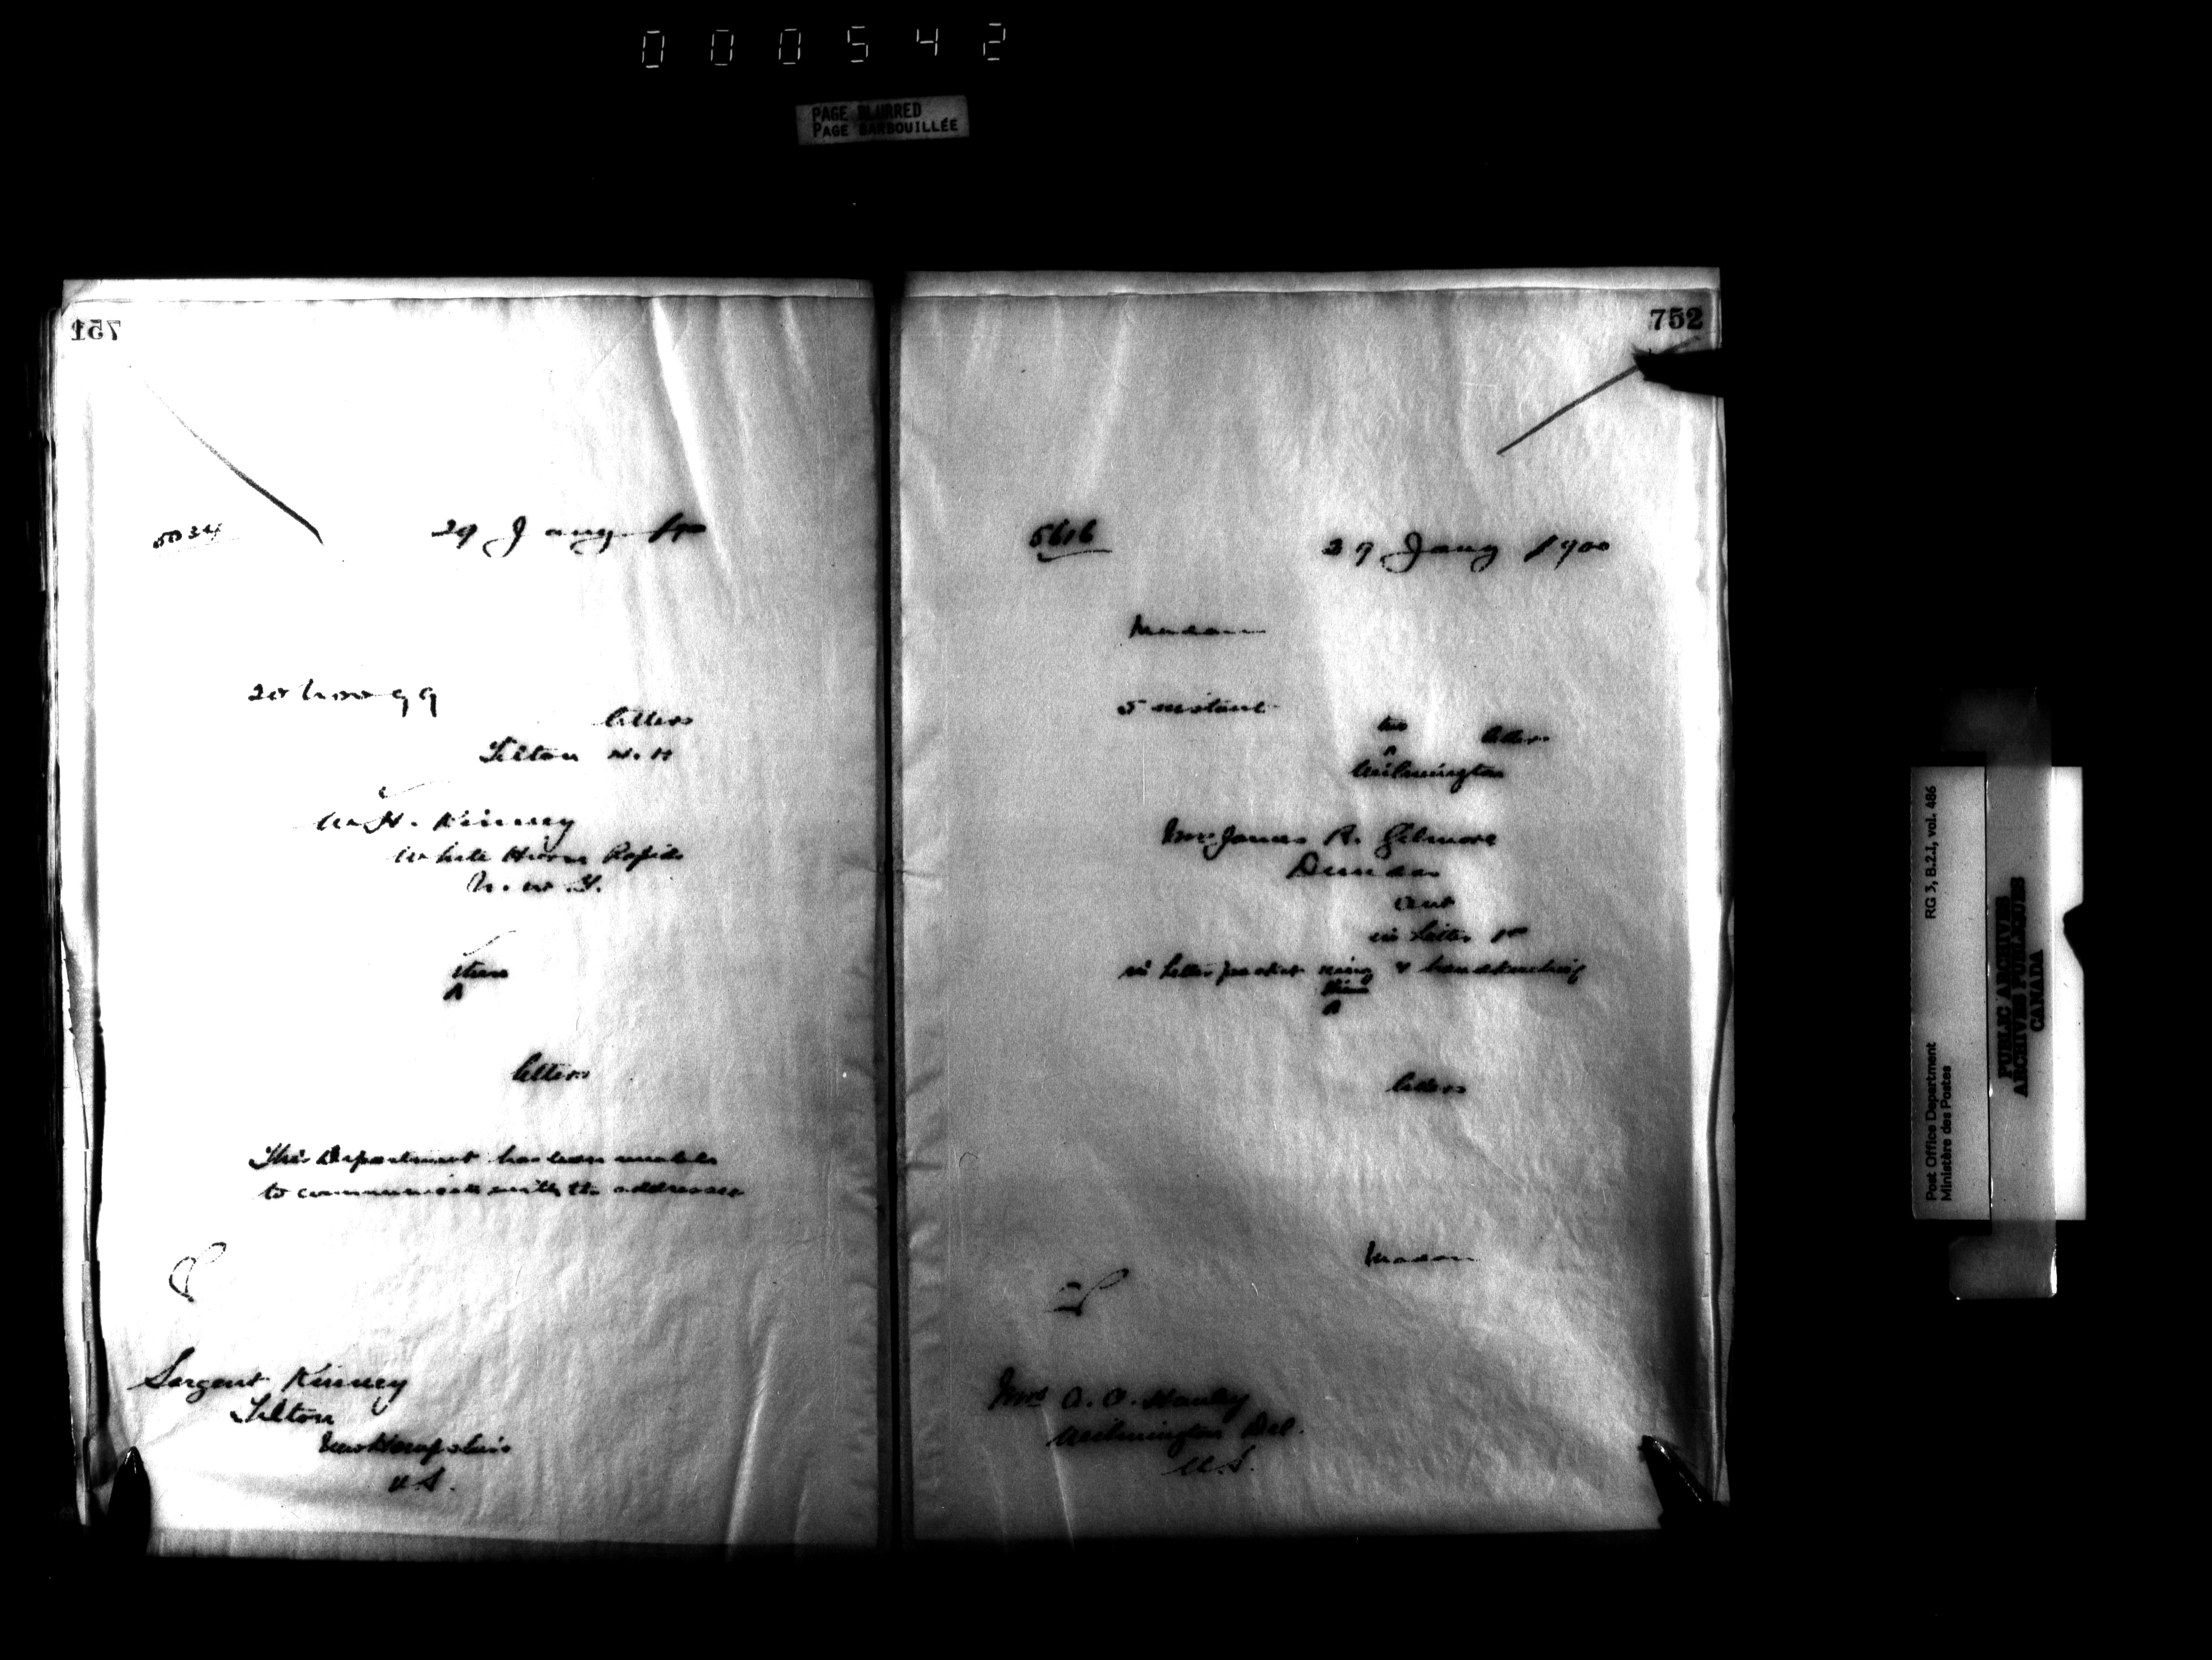 000542
PAGE BLURRED
PAGE BARBOUILLÉE
751
5034
29 Jany 1900
20 Nov 99
letters
Tilton N.H
W. H. Kinney
White Horse Rapids
N. W. T.
them
letters
This Department has been unable
to communicate with the addressee
Sargent Kinney
Tilton
New Hampshire
U.S.
752
5616
29 Jany 1900
Madam
5 instant
two letters
Wilmington
Mrs James R. Gilmore
Dundas
Ont
in letter
in letter packet ring & handkerchief
letters
Madam
Mrs A. O. Stanley
Wilmington Del.
U.S.
Post Office Department
Ministère des Postes
RG 3, B.2.1, vol. 486
PUBLIC ARCHIVES
ARCHIVES PUBLIQUES
CANADA